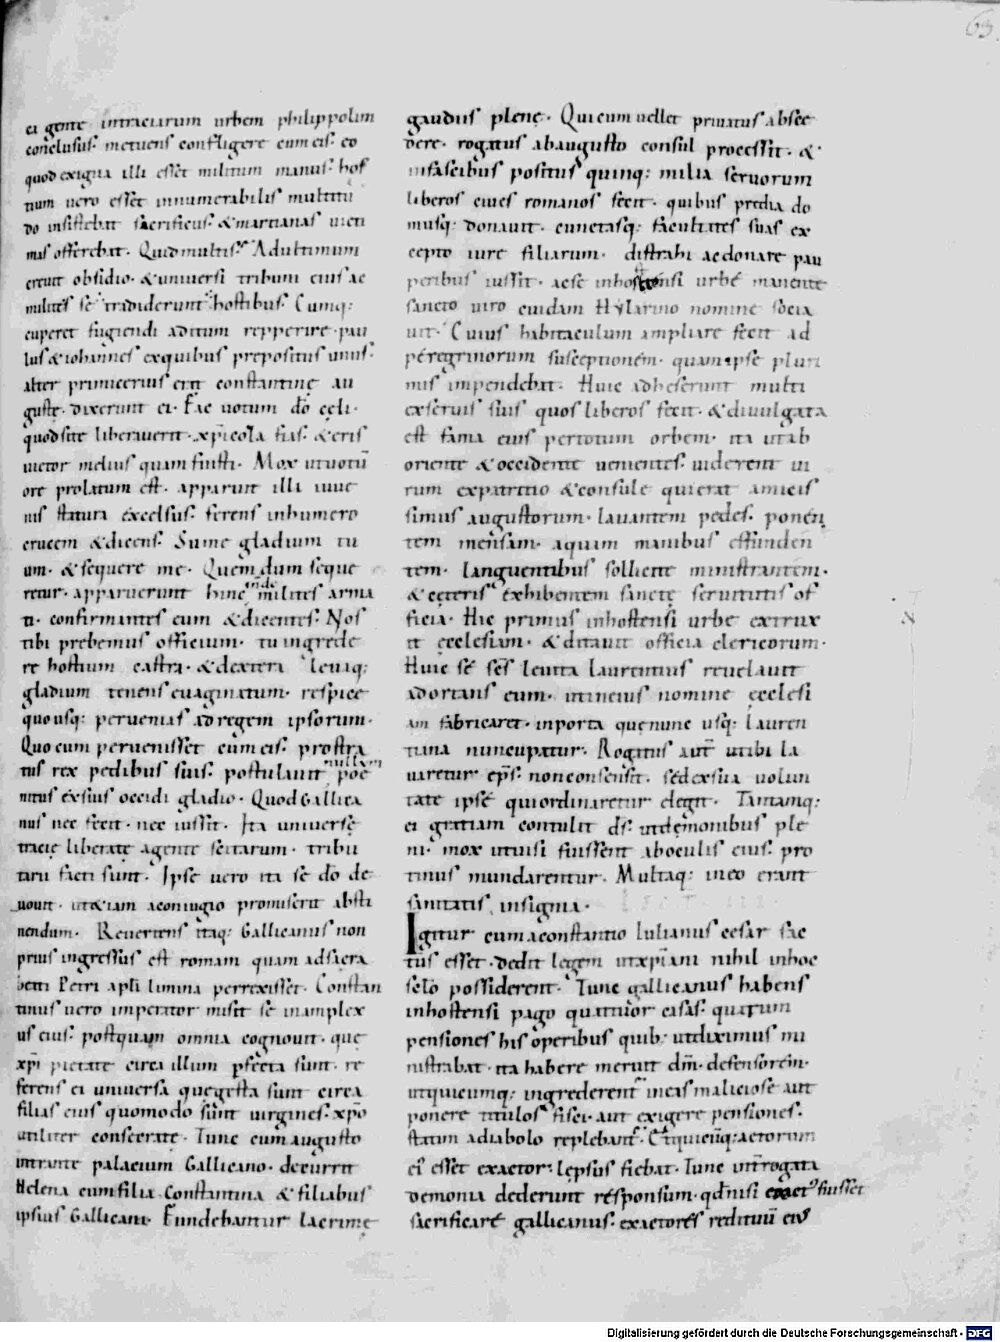 63.
ei gente intraciarum urbem philippolim
conclusus. metuens confligere cum eis. eo
quod exigua illi esset militum manus. hos
tium uero esset innumerabilis multitu
do insistebat sacrificiis. & martianas uicti
mas offerebat. Quid multis? Ad ultimum
creuit obsidio. & uniuersi tribuni eius ac
milites se tradiderunt hostibus. Cumq:
cuperet fugiendi aditum repperire. pau
lus & iohannes ex quibus prepositus unus.
alter primicerius erat constantinę au
gustę. dixerunt ei. Fac uotum dō cęli.
quod si te liberauerit. xp̄icola fias. & eris
uictor melius quam fuisti. Mox ut uotū
ore prolatum est. apparuit illi iuue
nis statura excelsus. ferens in humero
crucem & dicens. Sume gladium tu
um. & sequere me. Quem dum seque
retur. apparuerunt hinc inde milites arma
ti. confirmantes eum & dicentes. Nos
tibi prebemus officium. tu ingrede
re hostium castra. & dextera leuaq:
gladium tenens euaginatum. respice
quousq: peruenias ad regem ipsorum.
Quo cum peruenisset cum eis. prostra
tus rex pedibus suis. postulauit nullam poe
nitus ex suis occidi gladio. Quod Gallica
nus nec fecit. nec iussit. Ita uniuerse
tracię liberate agente scitarum. tribu
tarii facti sunt. Ipse uero ita se dō de
uouit. ut etiam a coniugio promiserit absti
nendum. Reuertens itaq: Gallicanus non
prius ingressus est romam quam ad sacra
beati Petri ap̄li limina perrexisset. Constan
tinus uero imperator misit se in amplex
us eius. postquam omnia cognouit. que
xp̄i pietate circa illum pfecta sunt. re
ferens ei uniuersa que gesta sunt circa
filias eius quomodo sunt uirgines. xp̄o
utiliter consecrate. Tunc cum augusto
intrante palacium Gallicano. decurrit
Helena cum filia Constantina & filiabus
ipsius Gallicani. Fundebantur lacrimę
gaudiis plenę. Qui cum uellet priuatus absce
dere. rogatus ab augusto consul processit. &
in fascibus positus quinq: milia seruorum
liberos ciues romanos fecit. quibus predia do
musq: donauit. cunctasq: facultates suas ex
cepto iure filiarum. distrahi ac donare pau
peribus iussit. ac se in hostensi urbē manente
sancto uiro cuidam Hylarino nomine socia
uit. Cuius habitaculum ampliare fecit ad
peregrinorum susceptionem. quam ipse pluri
mis impendebat. Huic adheserunt multi
ex seruis suis quos liberos fecit. & diuulgata
est fama eius per totum orbem. ita ut ab
oriente & occidente uenientes. uiderent ui
rum ex patricio & consule qui erat amicis
simus augustorum. lauantem pedes. ponen
tem mensam. aquam manibus effunden
tem. languentibus sollicite ministrantem.
& cęteris exhibentem sanctę seruitutis of
ficia. Hic primus in hostensi urbe extrux
it ecclesiam. & ditauit officia clericorum.
Huic sc̄ sc̄s leuita laurentius reuelauit
adortans eum. ut in eius nomine ęcclesi
am fabricaret. in porta que nunc usq: Lauren
tina nuncupatur. Rogatus aut̄ ut ibi la
uaretur ep̄s. non consensit. sed ex sua uolun
tate ipse qui ordinaretur elegit. Tantamq:
ei gratiam contulit d̄s. ut demonibus ple
ni. mox ut uisi fuissent ab oculis eius. pro
tinus mundarentur. Multaq: in eo erant
sanitatis insignia.
Igitur cum a constantio Iulianus cesar fac
tus esset. dedit legem ut xp̄iani nihil in hoc
sęlo possiderent. Tunc gallicanus habens
in hostensi pago quattuor casas. quarum
pensiones his operibus quib; ut diximus mi
nistrabat. ita habere meruit dm̄. defensorem.
ut quicumq: ingrederent in eas maliciose aut
ponere titulos fisci. aut exigere pensiones.
statim a diabolo replebant. Et quicūq: actorum
ei esset exactor. lepsus fiebat. Tunc int̄rogata
demonia dederunt responsum. qd nisi exact fuisset
sacrificare gallicanus. exactores redituū eius
N
Digitalisierung gefördert durch die Deutsche Forschungsgemeinschaft - DFG